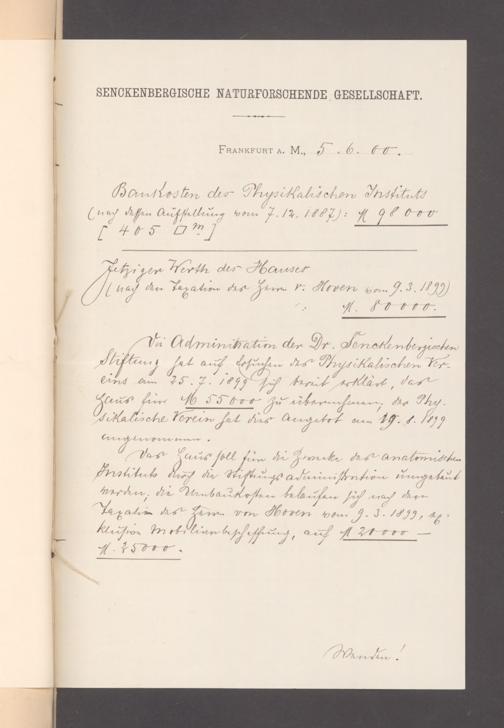 SENCKENBERGISCHE NATURFORSCHENDE GESELLSCHAFT.
FRANKFURT A. M., 5. 6. 00.
Baukosten des Physikalischen Instituts
(nach dessen Aufstellung vom 7.12.1887): M 98000
[405 □m]
Jetziger Werth des Hauses
(nach der Taxation des Herrn v. Hoven vom 9.3.1899)
M. 80000.
Die Administration der Dr. Senckenbergischen
Stiftung hat auf Ersuchen des Physikalischen Ver-
eins am 25.7.1899 sich bereit erklärt, das
Haus für M 55000 zu übernehmen; der Phy-
sikalische Verein hat dies Angebot am 19.8.1899
angenommen.
Das Haus soll für die Zwecke des anatomischen
Instituts durch die Stiftungsadministration umgebaut
werden; die Umbaukosten belaufen sich nach der
Taxation des Herrn von Hoven vom 9.3.1899, ex-
klusive Mobilienbeschaffung, auf M 20000 —
M. 25000.
Wenden!